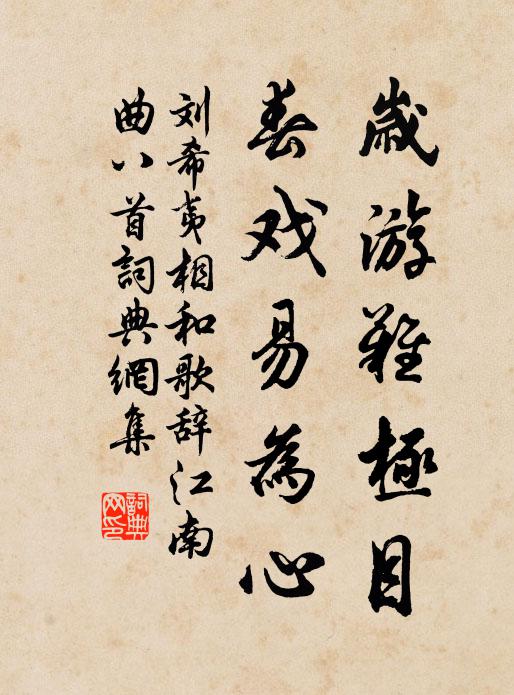 歲游難極目
春戏易為心
刘希夷相和歌辞江南
曲八首詞典網集
詞典网印